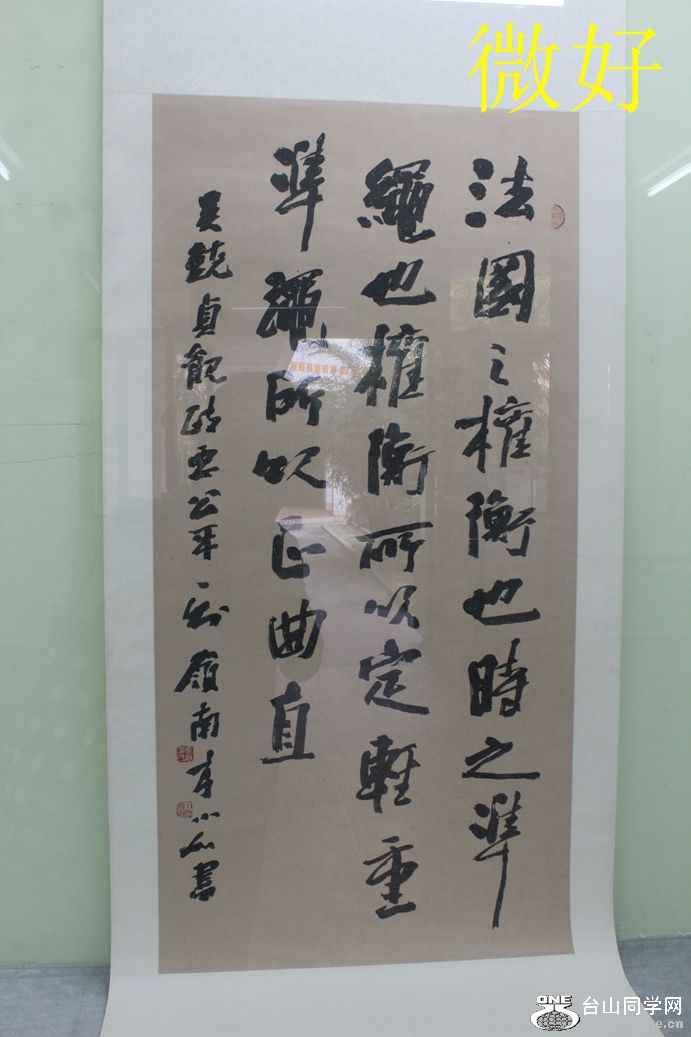 微好
法國之權衡也時之準
繩也權衡所以定輕重
準繩所以正曲直
吴兢貞觀政要公平一則嶺南
書
ONE
台山同学网